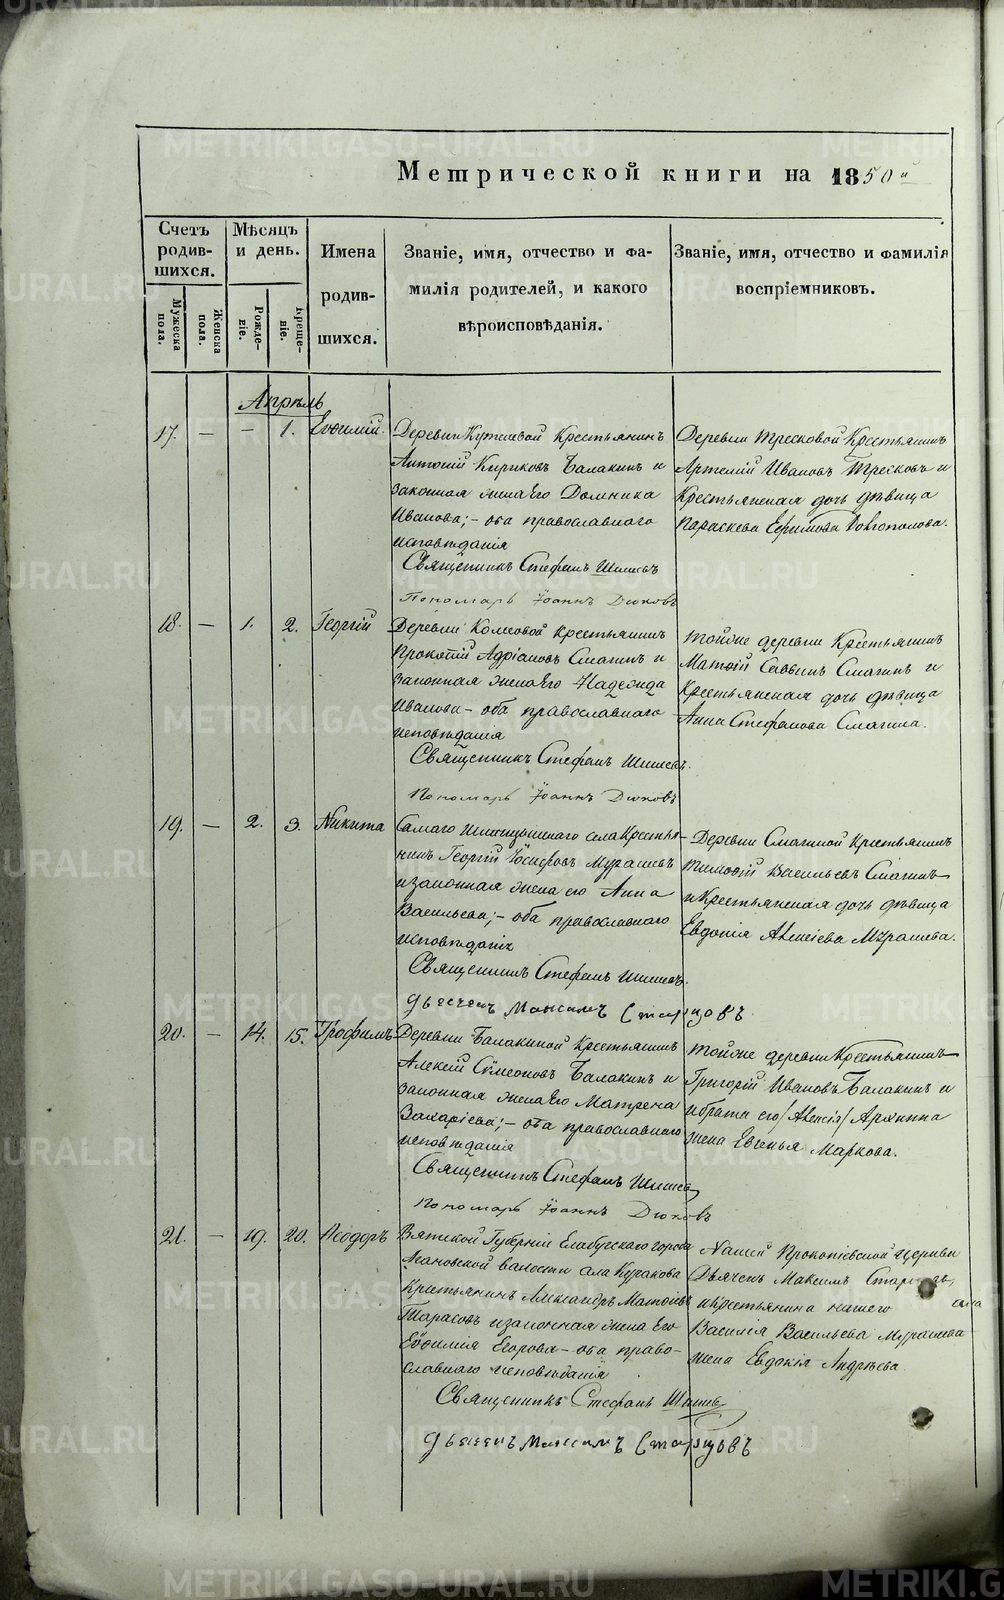 METRIKI.GASO-URAL.RU
Метрической книги на 1850й
Счетъ родив-шихся.
Мѣсяцъ и день.
Имена родив-шихся.
Званіе, имя, отчество и фа-милія родителей, и какого вѣроисповѣданія.
Званіе, имя, отчество и фамилія воспріемниковъ.
Мужеска пола.
Женска пола.
Рожде-ніе.
Креще-ніе.
Апрѣль
17. — — 1. Евѳимій.
Деревни Крестьянинъ
Антоній Кириковъ Балакинъ и
законная жена Его Домника
Иванова; – оба православнаго
исповѣданія
Деревни Тресковой Крестьянинъ
Артемій Ивановъ Тресковъ и
Крестьянская дочь дѣвица
Параскева Ефимова Долгополова.
Священникъ Стефанъ Шишевъ
Пономарь Іоаннъ Дюковъ
18. — 1. 2. Георгій
Деревни Крестьянинъ
Прокопій Адріановъ Смагинъ и
законная жена Его Надежда
Иванова – оба православнаго
исповѣданія
тойже деревни Крестьянинъ
Матѳій Саввинъ Смагинъ и
Крестьянская дочь дѣвица
Анна Стефанова Смагина.
Священникъ Стефанъ Шишевъ.
Пономарь Іоаннъ Дюковъ
19. — 2. 3. Никита
Самаго села Крестья-
нинъ Георгій Іосифовъ Мурашевъ
и законная жена его Анна
Васильева; – оба православнаго
исповѣданія
Деревни Смагиной Крестьянинъ
Тимоѳій Васильевъ Смагинъ
и Крестьянская дочь дѣвица
Евдокія Алексіева Мурашева.
Священникъ Стефанъ Шишевъ.
Дьячекъ Максимъ Старцовъ
20. — 14. 15. Трофимъ
Деревни Балакиной Крестьянинъ
Алексій Симеоновъ Балакинъ и
законная жена Его Матрена
Захаріева; – оба православнаго
исповѣданія
тойже деревни Крестьянинъ
Григорій Ивановъ Балакинъ и
и брата его /Алексія/
жена Евгенья Маркова.
Священникъ Стефанъ Шишевъ
Пономарь Іоаннъ Дюковъ
21. — 19. 20. Ѳеодоръ
Вятской Губерніи Елабугскаго города
волости села Куракова
Крестьянинъ Александръ Матѳіевъ
Тарасовъ и законная жена Его
Евѳимія Егорова – оба право-
славнаго исповѣданія
Нашей Прокопіевской церкви
Дьячекъ Максимъ Старцовъ
и крестьянина нашего села
Василія Васильева Мурашева
жена Евдокія Андрѣева
Священникъ Стефанъ Шишевъ
Дьячекъ Максимъ Старцовъ